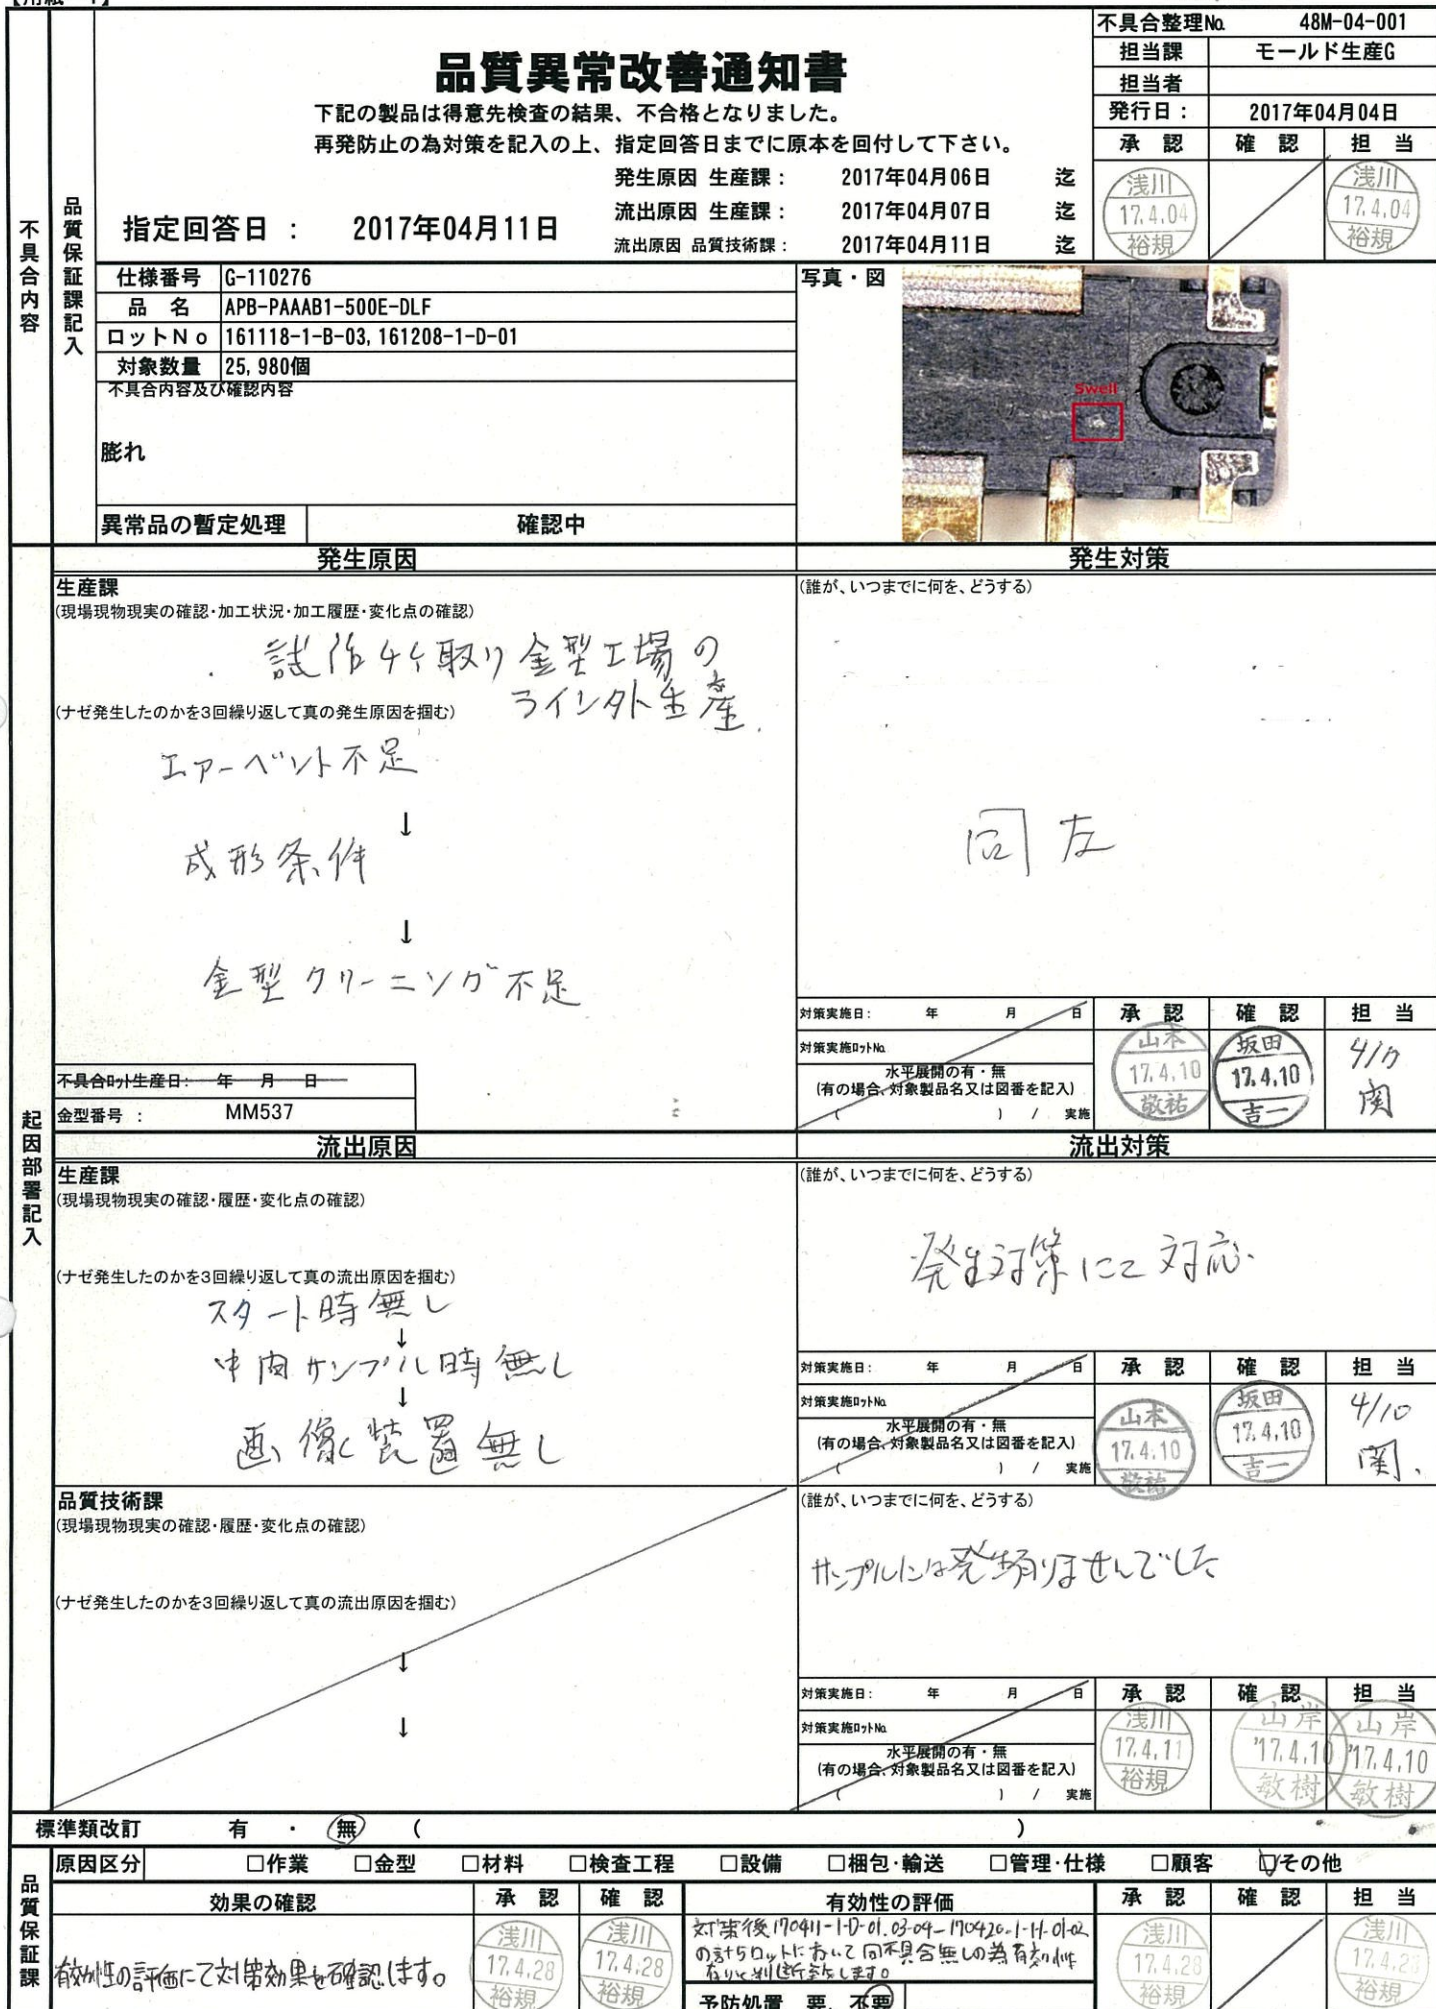 【用紙-1】
不具合整理No. 48M-04-001
担当課 モールド生産G
担当者
発行日： 2017年04月04日
承認 確認 担当
浅川 17.4.04 裕規
浅川 17.4.04 裕規
品質異常改善通知書
下記の製品は得意先検査の結果、不合格となりました。
再発防止の為対策を記入の上、指定回答日までに原本を回付して下さい。
発生原因 生産課： 2017年04月06日 迄
流出原因 生産課： 2017年04月07日 迄
流出原因 品質技術課： 2017年04月11日 迄
指定回答日 ： 2017年04月11日
不具合内容
品質保証課記入
仕様番号 G-110276
品名 APB-PAAAB1-500E-DLF
ロットNo 161118-1-B-03, 161208-1-D-01
対象数量 25,980個
不具合内容及び確認内容
膨れ
異常品の暫定処理 確認中
写真・図
Swell
起因部署記入
発生原因 発生対策
生産課
(現場現物現実の確認・加工状況・加工履歴・変化点の確認)
取り金型工場の
ラインタト生産.
(ナゼ発生したのかを3回繰り返して真の発生原因を掴む)
エアーベント不足
↓
成形条件
↓
金型クリーニング不足
不具合ロット生産日： 年 月 日
金型番号 ： MM537
(誰が、いつまでに何を、どうする)
同左
対策実施日： 年 月 日
対策実施ロットNo.
水平展開の有・無
(有の場合、対象製品名又は図番を記入)
( ) / 実施
承認 確認 担当
山本 17.4.10 敬祐
坂田 17.4.10 吉一
4/10 関
流出原因 流出対策
生産課
(現場現物現実の確認・履歴・変化点の確認)
(ナゼ発生したのかを3回繰り返して真の流出原因を掴む)
スタート時無し
↓
中間サンプル時無し
↓
画像装置無し
(誰が、いつまでに何を、どうする)
発生対策にて対応.
対策実施日： 年 月 日
対策実施ロットNo.
水平展開の有・無
(有の場合、対象製品名又は図番を記入)
( ) / 実施
承認 確認 担当
山本 17.4.10 敬祐
坂田 17.4.10 吉一
4/10 関.
品質技術課
(現場現物現実の確認・履歴・変化点の確認)
(ナゼ発生したのかを3回繰り返して真の流出原因を掴む)
↓
↓
(誰が、いつまでに何を、どうする)
サンプルには発生有りませんでした
対策実施日： 年 月 日
対策実施ロットNo.
水平展開の有・無
(有の場合、対象製品名又は図番を記入)
( ) / 実施
承認 確認 担当
浅川 17.4.11 裕規
山岸 '17.4.10 敏樹
山岸 '17.4.10 敏樹
標準類改訂 有 ・ 無 ( )
品質保証課
原因区分 □作業 □金型 □材料 □検査工程 □設備 □梱包・輸送 □管理・仕様 □顧客 ☑その他
効果の確認 承認 確認 有効性の評価 承認 確認 担当
有効性の評価にて対策効果を確認します。
浅川 17.4.28 裕規
浅川 17.4.28 裕規
対策後170411-1-D-01.03-04-170420-1-H-01-02
の計5ロットにおいて同不具合無しの為有効性
有りと判断致します。
浅川 17.4.28 裕規
浅川 17.4.28 裕規
予防処置 要、不要